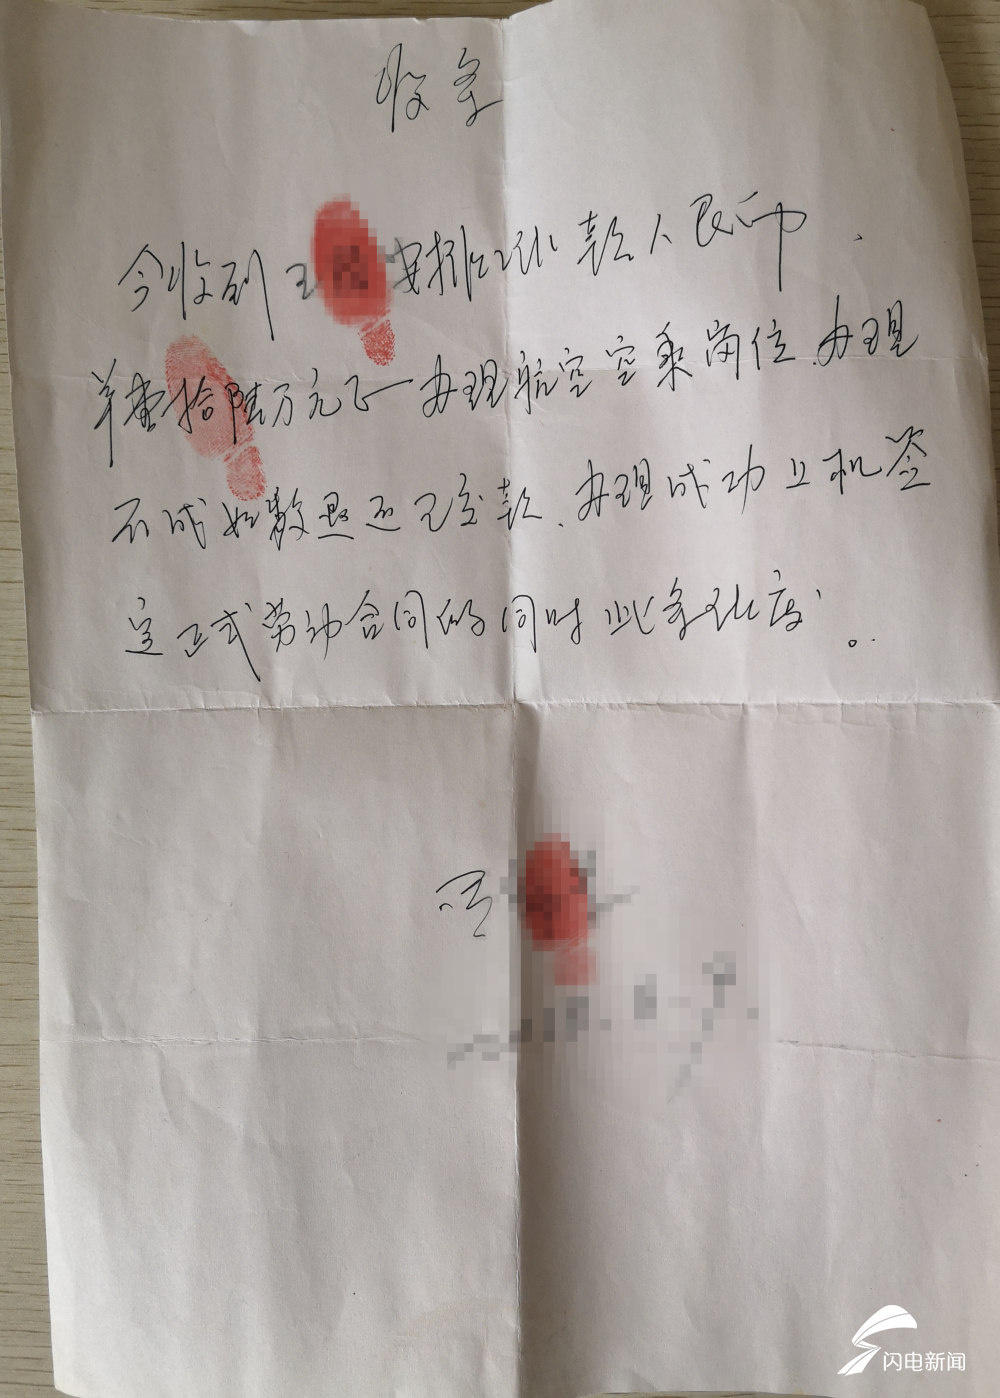 收条
今收到王 安排工作款人民币、
羊壹拾陆万元正 办理航空空乘岗位.办理
不成如数退还已交款、办理成功上机签
定正式劳动合同的同时此条作废。
闪电新闻